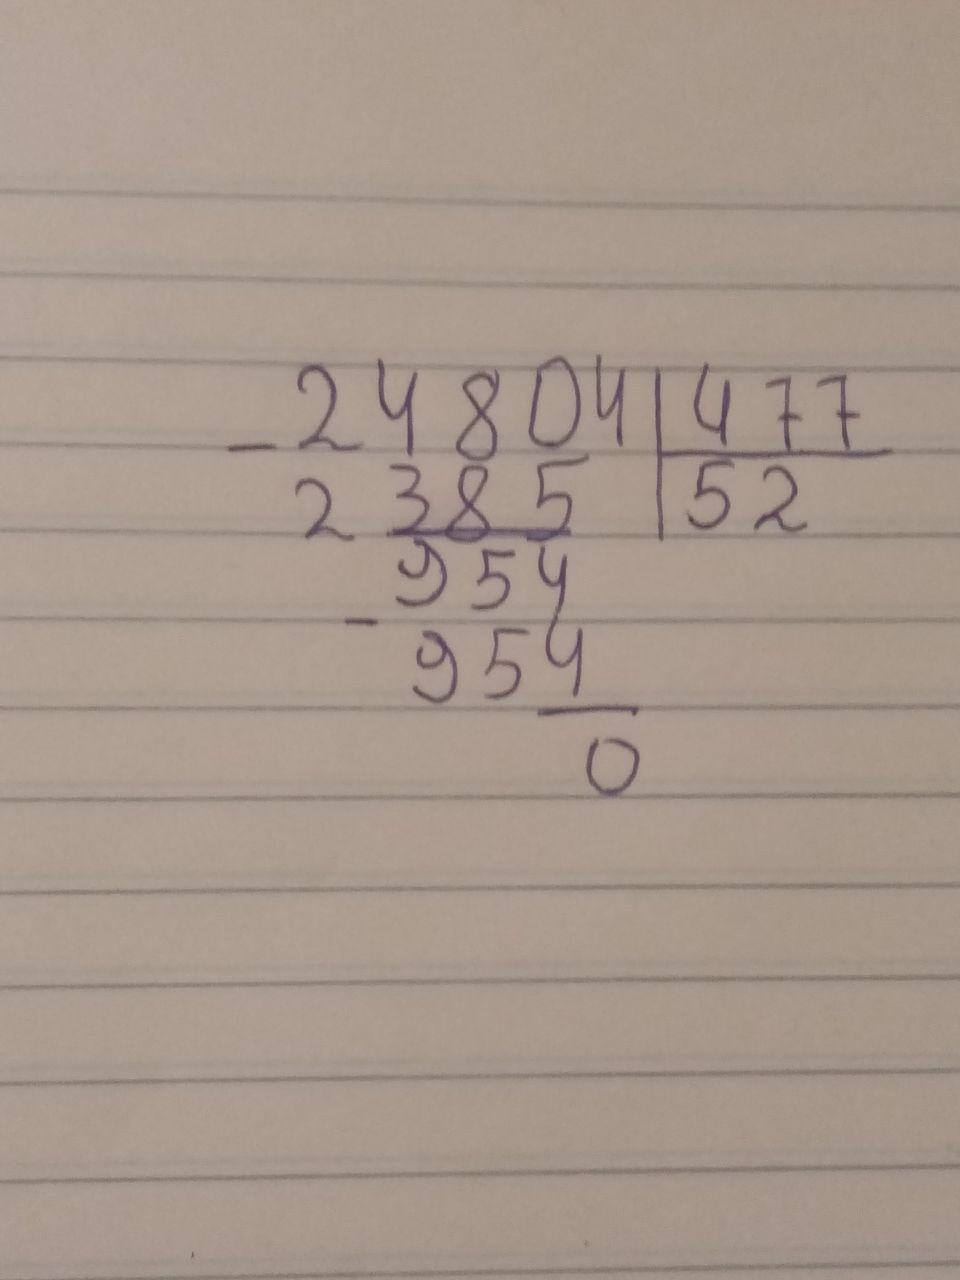 - 24804 | 477
2385 | 52
954
- 954
0